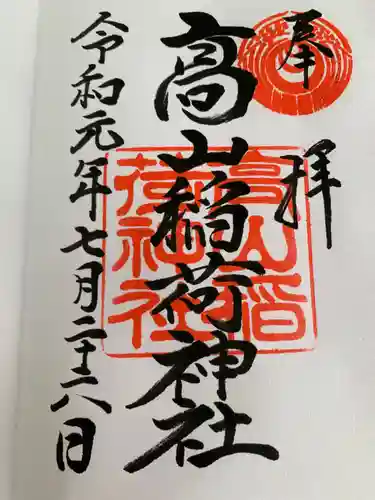 奉拝
高山稲荷神社
高山稲荷神社
令和元年七月二十六日